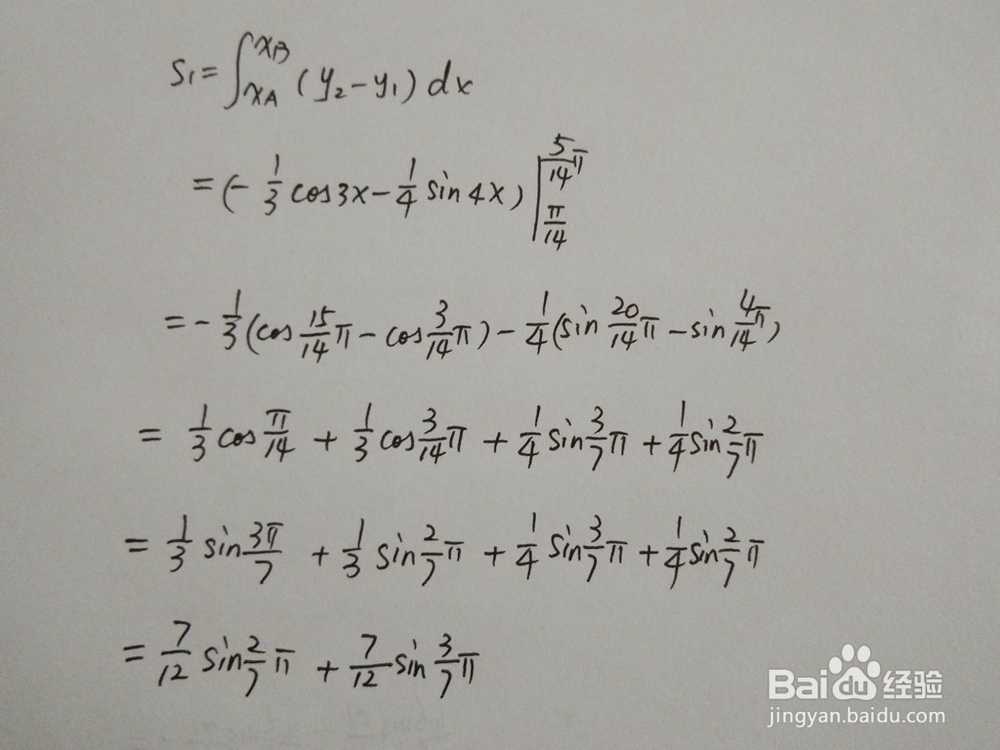 S₁=∫_{xA}^{xB} (y₂-y₁) dx
=(-1/3 cos3x-1/4 sin4x)|_{π/14}^{5/14 π}
=-1/3(cos 15/14 π-cos 3/14 π)-1/4(sin 20/14 π-sin 4π/14)
=1/3 cos π/14+1/3 cos 3/14 π+1/4 sin 3/7 π+1/4 sin 2/7 π
=1/3 sin 3π/7+1/3 sin 2/7 π+1/4 sin 3/7 π+1/4 sin 2/7 π
=7/12 sin 2/7 π+7/12 sin 3/7 π
Baidu经验
jingyan.baidu.com